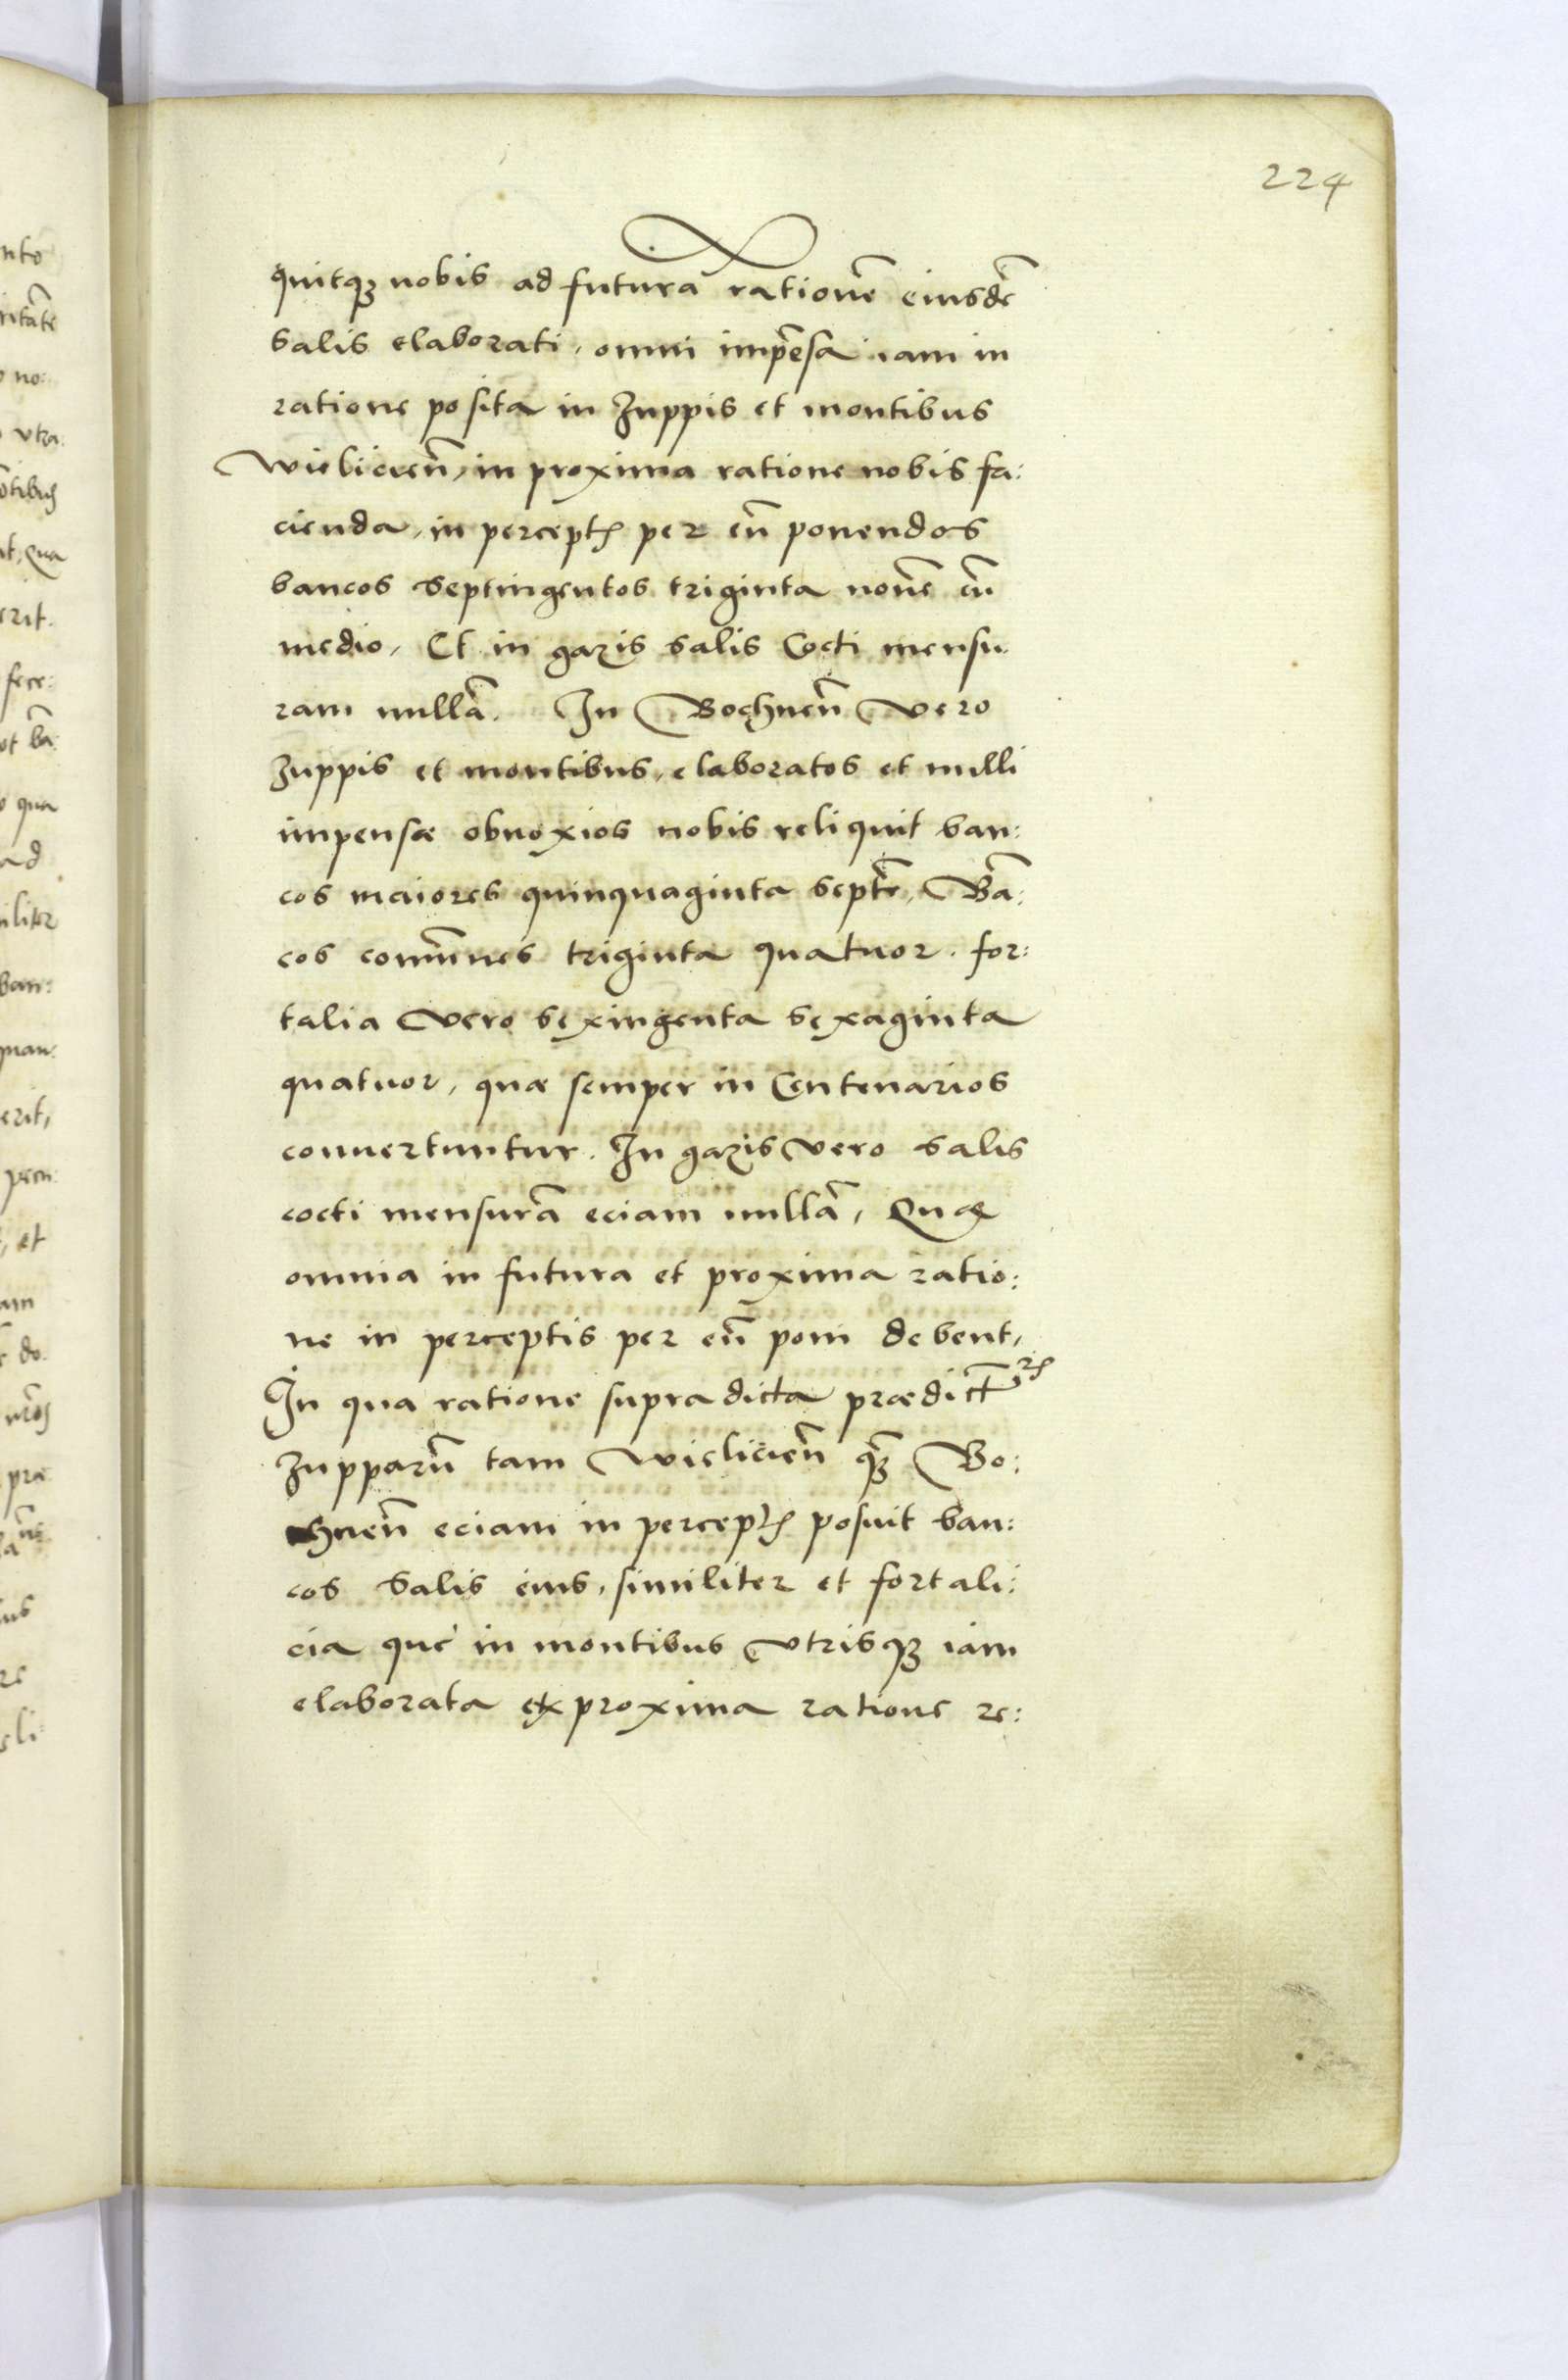 224
quitqȝ nobis ad futurā rationē eiusdē
salis elaborati, omni impēsa iam in
ratione posita in Zuppis et montibus
Wielicieñ, in proxima ratione nobis fa:
cienda, in perceptꝭ per eū ponendos
bancos septingentos triginta nouē cū
medio, Et in gazis salis Cocti mensu
ram nullā. In Bochneñ vero
Zuppis et montibus, elaboratos et nulli
impensæ obnoxios nobis reliquit ban:
cos maiores quinquaginta septē, Bā:
cos com̄unes triginta quatuor. for:
talia vero sexingenta sexaginta
quatuor, quæ semper in Centenarios
conuertuntur. In gazis vero salis
cocti mensurā eciam nullā, Quæ
omnia in futura et proxima ratio:
ne in perceptis per eū poni debent,
In qua ratione supradicta prædict̄ꝝ
Zupparū tam Wielicieñ qȝ̄ Bo:
chneñ eciam in perceptꝭ posuit ban:
cos salis eius, similiter et fortali:
cia que in montibus vtrisqȝ iam
elaborata ex proxima ratione re: